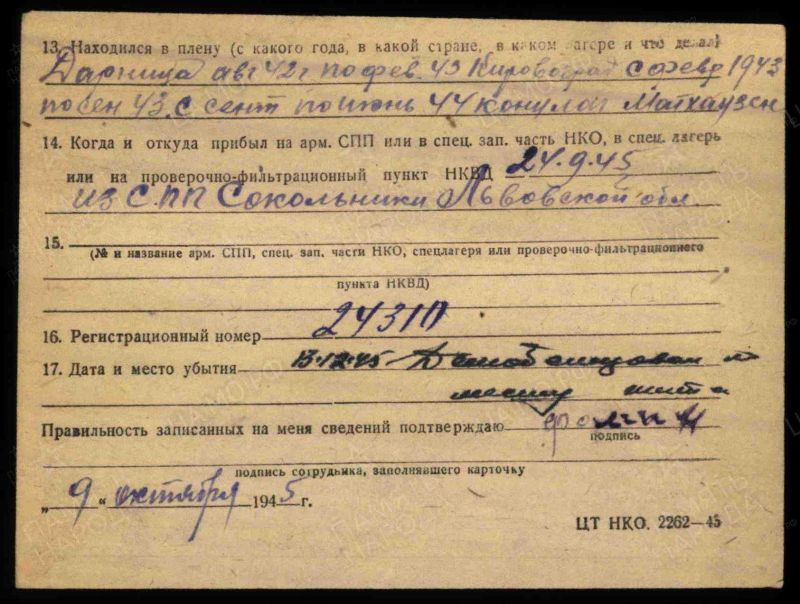 13. Находился в плену (с какого года, в какой стране, в каком лагере и что делал)
Дарница авг 42г по фев. 43 Кировоград с февр 1943
по сен 43. с сент по июнь 44 концлаг Матхаузен
14. Когда и откуда прибыл на арм. СПП или в спец. зап. часть НКО, в спец. лагерь
или на проверочно-фильтрационный пункт НКВД 24.9.45
из СПП Сокольники Львовской обл.
15.
(№ и название арм. СПП, спец. зап. части НКО, спецлагеря или проверочно-фильтрационного
пункта НКВД)
16. Регистрационный номер 24310
17. Дата и место убытия 13.12.45 Демобилизован
месту жит
Правильность записанных на меня сведений подтверждаю
подпись
подпись сотрудника, заполнявшего карточку
„9“ октября 1945 г.
ЦТ НКО. 2262—45